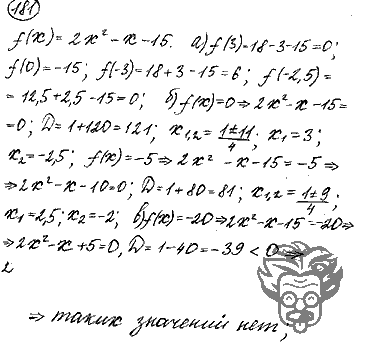 181
f(x) = 2x² - x - 15. а) f(3) = 18 - 3 - 15 = 0;
f(0) = -15; f(-3) = 18 + 3 - 15 = 6; f(-2,5) =
= 12,5 + 2,5 - 15 = 0; б) f(x) = 0 ⇒ 2x² - x - 15 =
= 0; D = 1 + 120 = 121; x₁,₂ = (1 ± 11)/4; x₁ = 3;
x₂ = -2,5; f(x) = -5 ⇒ 2x² - x - 15 = -5 ⇒
⇒ 2x² - x - 10 = 0; D = 1 + 80 = 81; x₁,₂ = (1 ± 9)/4;
x₁ = 2,5; x₂ = -2; в) f(x) = -20 ⇒ 2x² - x - 15 = -20 ⇒
⇒ 2x² - x + 5 = 0, D = 1 - 40 = -39 < 0 ⇒
2
⇒ таких значений нет;